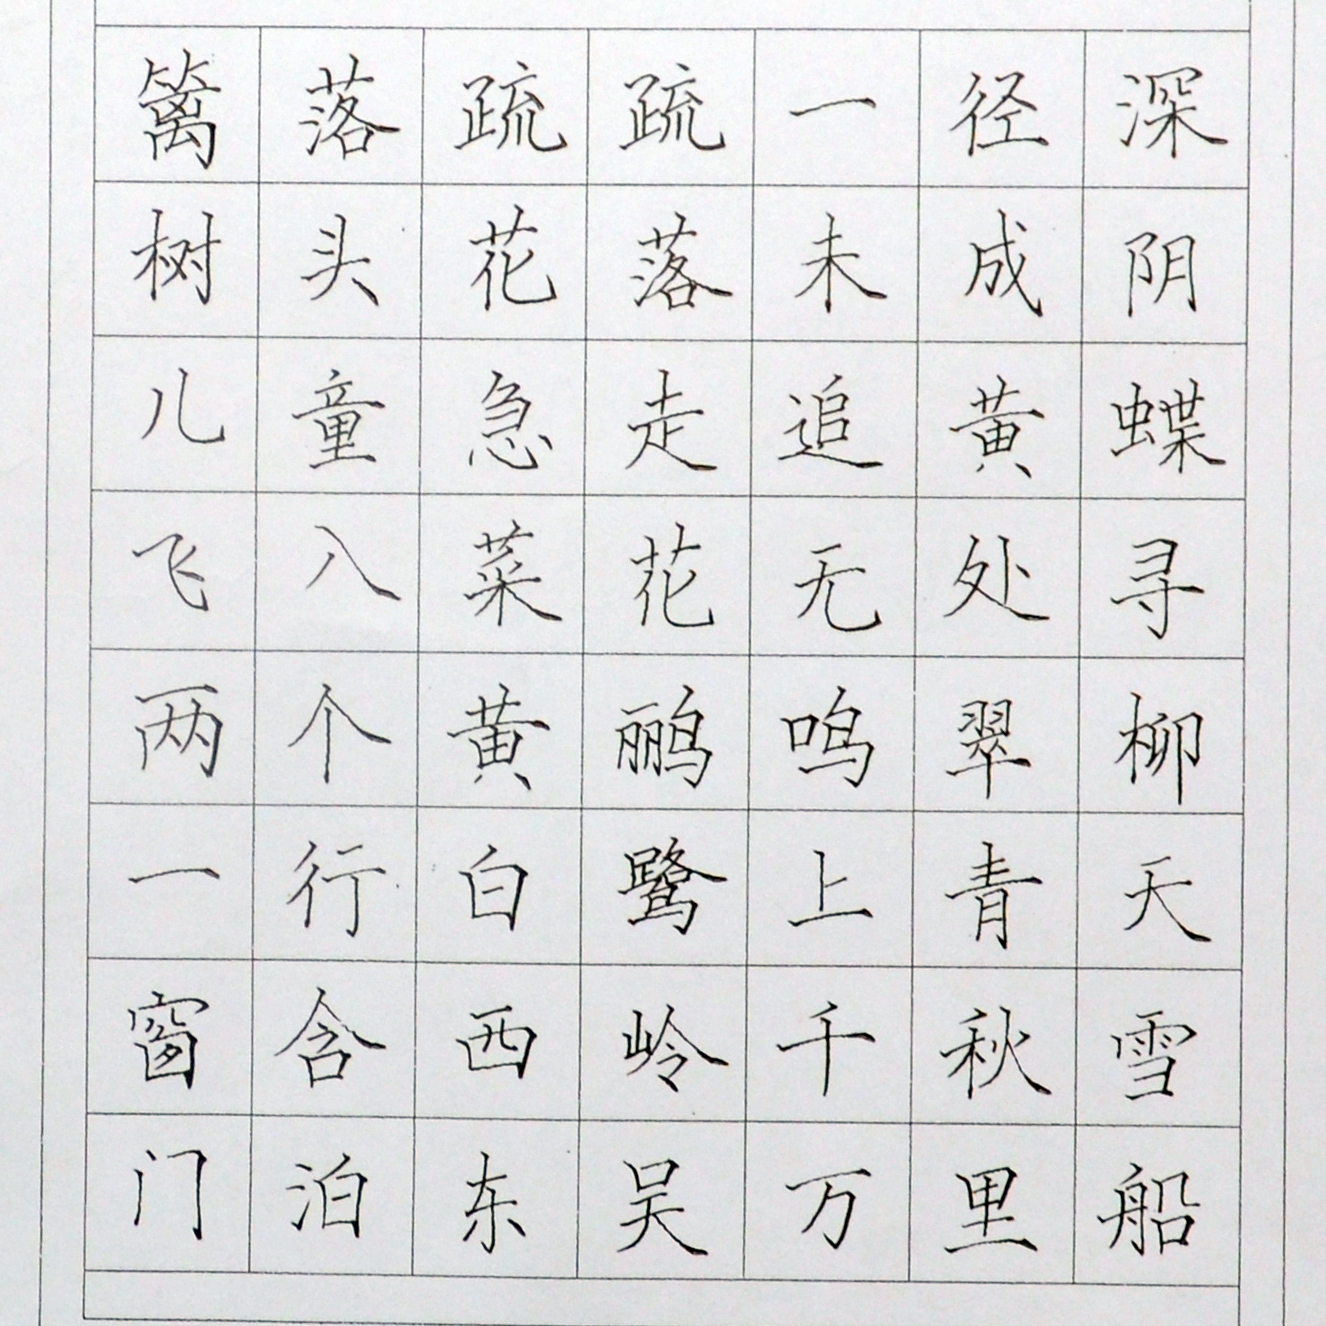 篱落疏疏一径深
树头花落未成阴
儿童急走追黄蝶
飞入菜花无处寻
两个黄鹂鸣翠柳
一行白鹭上青天
窗含西岭千秋雪
门泊东吴万里船